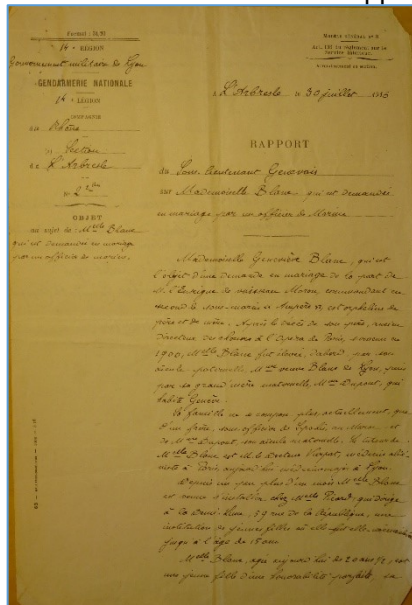 14e RÉGION
Gouvernement militaire de Lyon
GENDARMERIE NATIONALE
14e LÉGION
du Rhône
Section
de L'Arbresle
N° 2
OBJET
au sujet de Melle Blanc
qui est demandée en mariage
par un officier de marine.
à L'Arbresle le 30 juillet
RAPPORT
du Sous-lieutenant Genevois
sur Mademoiselle Blanc qui est demandée
en mariage par un officier de Marine
Mademoiselle Geneviève Blanc, qui est
l'objet d'une demande en mariage de la part de
M. l'Enseigne de vaisseau Moron, commandant en
second le sous-marin "Ampère" est orpheline de
père et de mère. Après le décès de son père, ancien
Directeur des chœurs à l'Opéra de Paris, survenu en
1900, Melle Blanc fut élevée, d'abord par son
aïeule paternelle, Mme veuve Blanc de Lyon, puis
par sa grand'mère maternelle, Mme Dupont, qui
habite Genève.
Sa famille ne se compose plus actuellement, que
d'un frère, sous-officier de Spahis, au Maroc, et
de Mme Dupont, son aïeule maternelle. Le tuteur de
Melle Blanc est M. le Docteur
à Paris, aujourd'hui à Lyon.
Depuis un peu plus d'un mois Melle Blanc
est venue s'installer chez Melle Picard, qui dirige
à 59 rue de la République, une
institution de jeunes filles où elle fut élevée
jusqu'à l'âge de 15 ans.
Melle Blanc, âgée aujourd'hui de 20 ans 1/2, est
une jeune fille d'une honorabilité parfaite, sa